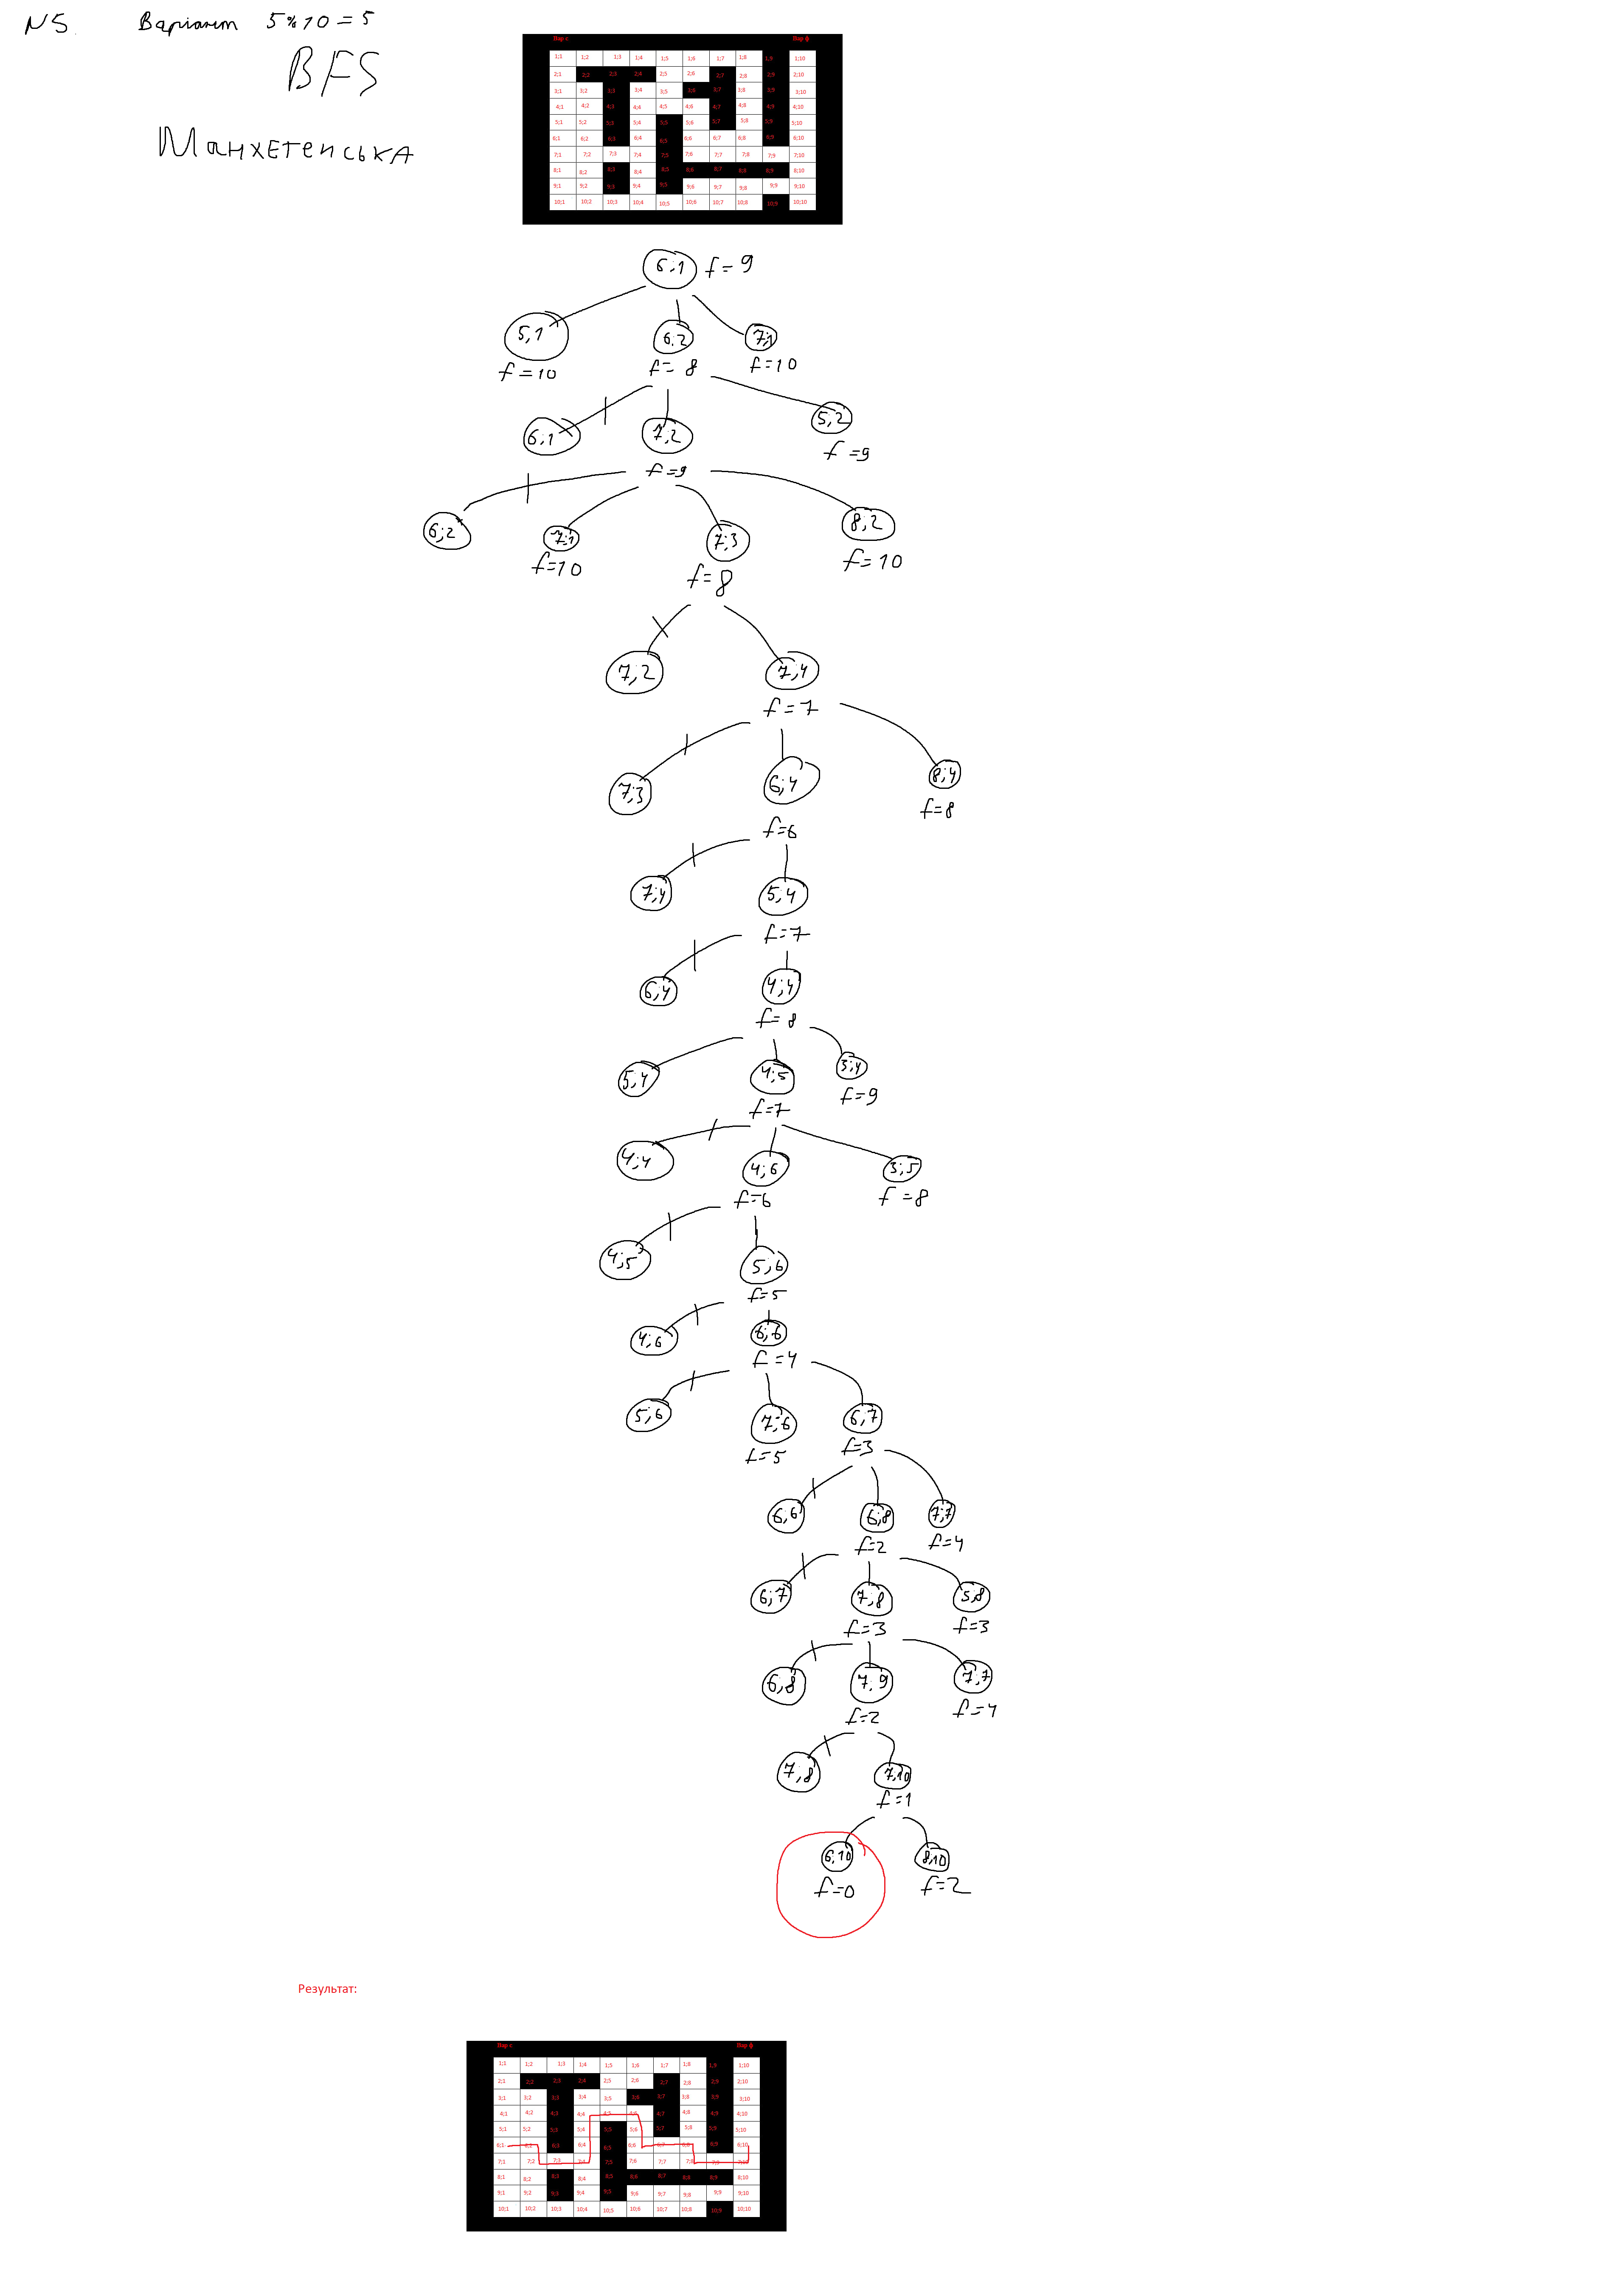 N5. Варіант 5%10=5
BFS
Манхетенська
Вар 5 Вар ф
1;1 1;2 1;3 1;4 1;5 1;6 1;7 1;8 1;9 1;10
2;1 2;2 2;3 2;4 2;5 2;6 2;7 2;8 2;9 2;10
3;1 3;2 3;3 3;4 3;5 3;6 3;7 3;8 3;9 3;10
4;1 4;2 4;3 4;4 4;5 4;6 4;7 4;8 4;9 4;10
5;1 5;2 5;3 5;4 5;5 5;6 5;7 5;8 5;9 5;10
6;1 6;2 6;3 6;4 6;5 6;6 6;7 6;8 6;9 6;10
7;1 7;2 7;3 7;4 7;5 7;6 7;7 7;8 7;9 7;10
8;1 8;2 8;3 8;4 8;5 8;6 8;7 8;8 8;9 8;10
9;1 9;2 9;3 9;4 9;5 9;6 9;7 9;8 9;9 9;10
10;1 10;2 10;3 10;4 10;5 10;6 10;7 10;8 10;9 10;10
6;1 f=9
5;1 6;2 7;1
f=10 f=8 f=10
6;1 7;2 5;2
f=9 f=9
6;2 7;1 7;3 8;2
f=10 f=8 f=10
7;2 7;4
f=7
7;3 6;4 8;4
f=6 f=8
7;4 5;4
f=7
6;4 4;4
f=8
5;4 4;5 3;4
f=7 f=9
4;4 4;6 3;5
f=6 f=8
4;5 5;6
f=5
4;6 6;6
f=4
5;6 7;6 6;7
f=5 f=3
6;6 6;8 7;7
f=2 f=4
6;7 7;8 5;8
f=3 f=3
6;8 7;9 7;7
f=2 f=4
7;8 7;10
f=1
6;10 8;10
f=0 f=2
Результат:
Вар ф
1;1 1;2 1;3 1;4 1;5 1;6 1;7 1;8 1;9 1;10
2;1 2;2 2;3 2;4 2;5 2;6 2;7 2;8 2;9 2;10
3;1 3;2 3;3 3;4 3;5 3;6 3;7 3;8 3;9 3;10
4;1 4;2 4;3 4;4 4;5 4;6 4;7 4;8 4;9 4;10
5;1 5;2 5;3 5;4 5;5 5;6 5;7 5;8 5;9 5;10
6;1 6;2 6;3 6;4 6;5 6;6 6;7 6;8 6;9 6;10
7;1 7;2 7;3 7;4 7;5 7;6 7;7 7;8 7;9 7;10
8;1 8;2 8;3 8;4 8;5 8;6 8;7 8;8 8;9 8;10
9;1 9;2 9;3 9;4 9;5 9;6 9;7 9;8 9;9 9;10
10;1 10;2 10;3 10;4 10;5 10;6 10;7 10;8 10;9 10;10